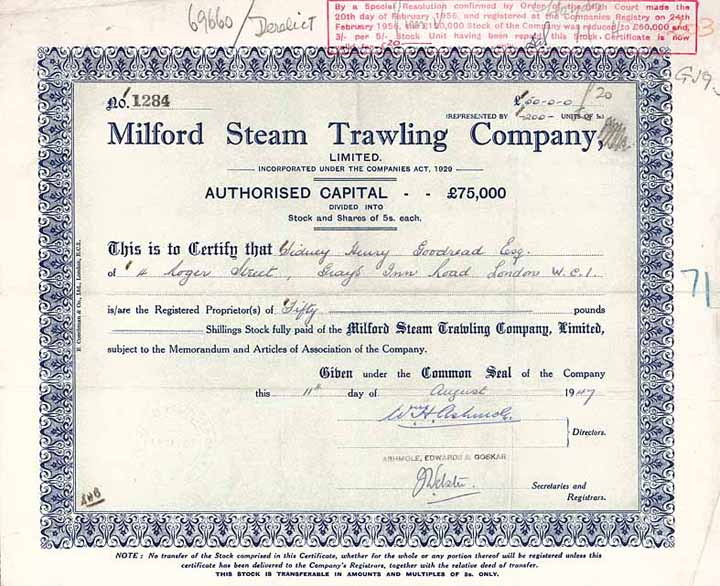 69660 / Derelict
By a Special Resolution confirmed by Order of the High Court made the
20th day of February 1956, and registered at the Companies Registry on 24th
February 1956, £15,000 Stock of the Company was reduced to £60,000 and
3/- per 5/- Stock Unit having been repaid this Stock Certificate is now
valid for £20
No. 1284
£50-0-0
20
(REPRESENTED BY 200 - UNITS OF 5s.)
Milford Steam Trawling Company,
LIMITED.
INCORPORATED UNDER THE COMPANIES ACT, 1929
AUTHORISED CAPITAL - - £75,000
DIVIDED INTO
Stock and Shares of 5s. each.
This is to Certify that Sidney Henry Goodread Esq.
of 4 Roger Street, Grays Inn Road London W.C.1.
71
is/are the Registered Proprietor(s) of Fifty pounds
Shillings Stock fully paid of the Milford Steam Trawling Company, Limited,
subject to the Memorandum and Articles of Association of the Company.
Given under the Common Seal of the Company
this 11th day of August 1947
Wm H Ashmole
Directors.
ASHMOLE, EDWARDS & GOSKAR
Secretaries and
Registrars.
NOTE: No transfer of the Stock comprised in this Certificate, whether for the whole or any portion thereof will be registered unless this
certificate has been delivered to the Company's Registrars, together with the relative deed of transfer.
THIS STOCK IS TRANSFERABLE IN AMOUNTS AND MULTIPLES OF 5s. ONLY.